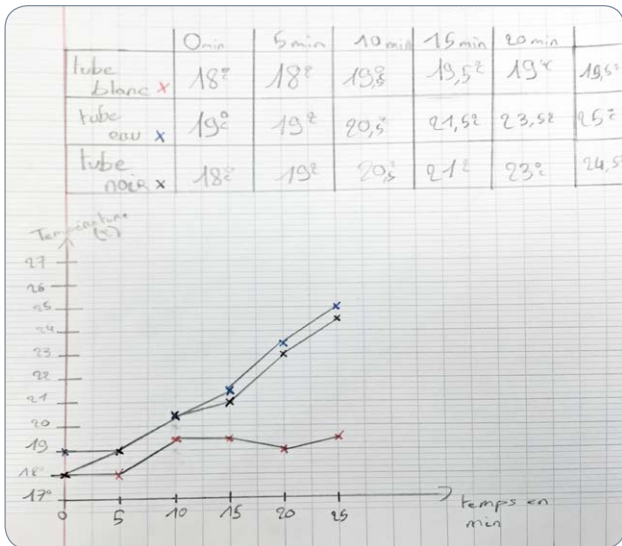 0 min 5 min 10 min 15 min 20 min
tube blanc x 18° 18° 19,5° 19,5° 19° 19,5°
tube eau x 19° 19° 20,5° 21,5° 23,5° 25°
tube noir x 18° 19° 20,5° 21° 23° 24,5°
Température
(°C)
27
26
25
24
23
22
21
20
19
18°
17°
0 5 10 15 20 25
temps en
min